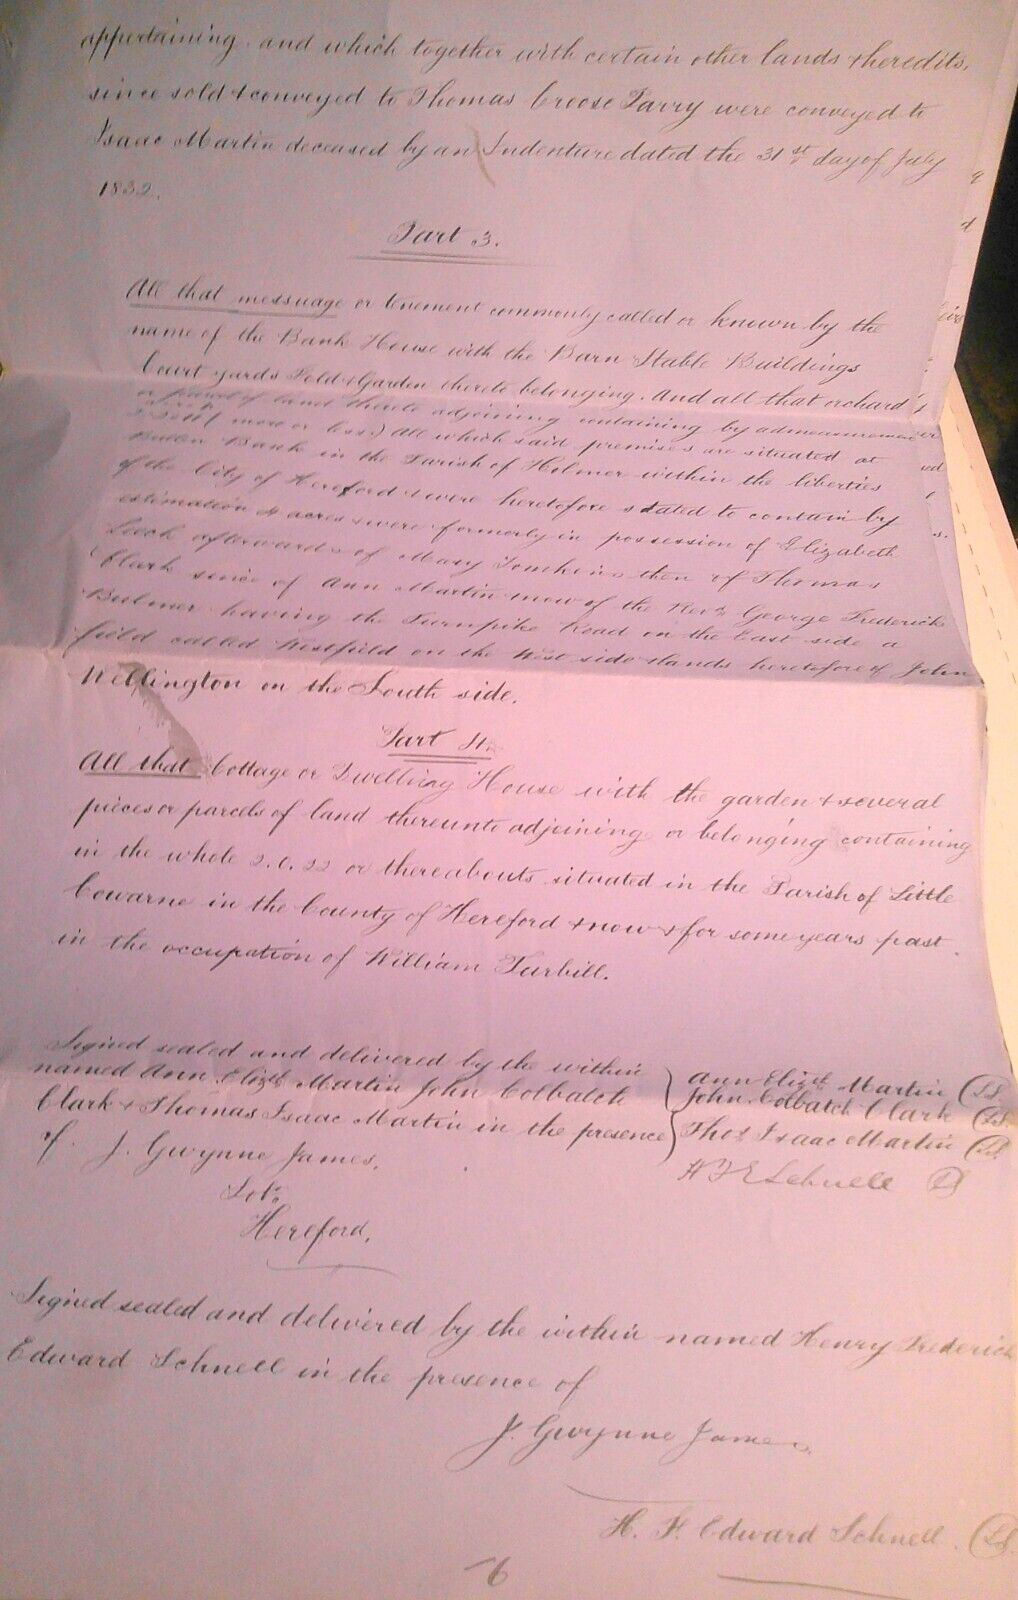 appertaining and which together with certain other lands & heredits.
since sold & conveyed to Thomas Croose Parry were conveyed to
Isaac Martin deceased by an Indenture dated the 31st day of July
1832.
Part 3.
All that messuage or tenement commonly called or known by the
name of the Bank House with the Barn Stable Buildings
Court yards Fold & Garden thereto belonging. And all that orchard
or parcel of land thereto adjoining containing by admeasurement
(more or less.) All which said premises are situated at
Bank in the Parish of Holmer within the liberties
of the City of Hereford & were heretofore stated to contain by
estimation 4 acres & were formerly in possession of Elizabeth
afterwards of Mary Tomkins then of Thomas
Clark since of Ann Martin & now of the Revd. George Frederick
Bulmer having the Turnpike Road on the East side a
field called Westfield on the West side & lands heretofore of John
Wellington on the South side.
Part 4.
All that Cottage or Dwelling House with the garden & several
pieces or parcels of land thereunto adjoining or belonging containing
in the whole 2. 0. 22 or thereabouts situated in the Parish of Little
Cowarne in the County of Hereford & now & for some years past
in the occupation of William Turbill.
Signed sealed and delivered by the within
named Ann Elizth Martin John Colbatch
Clark & Thomas Isaac Martin in the presence
of J. Gwynne James.
Solr.
Hereford.
Ann Elizth Martin LS.
John Colbatch Clark LS.
Thos Isaac Martin LS
H F E Schnell LS
Signed sealed and delivered by the within named Henry Frederick
Edward Schnell in the presence of
J. Gwynne James.
H. F. Edward Schnell. LS.
6